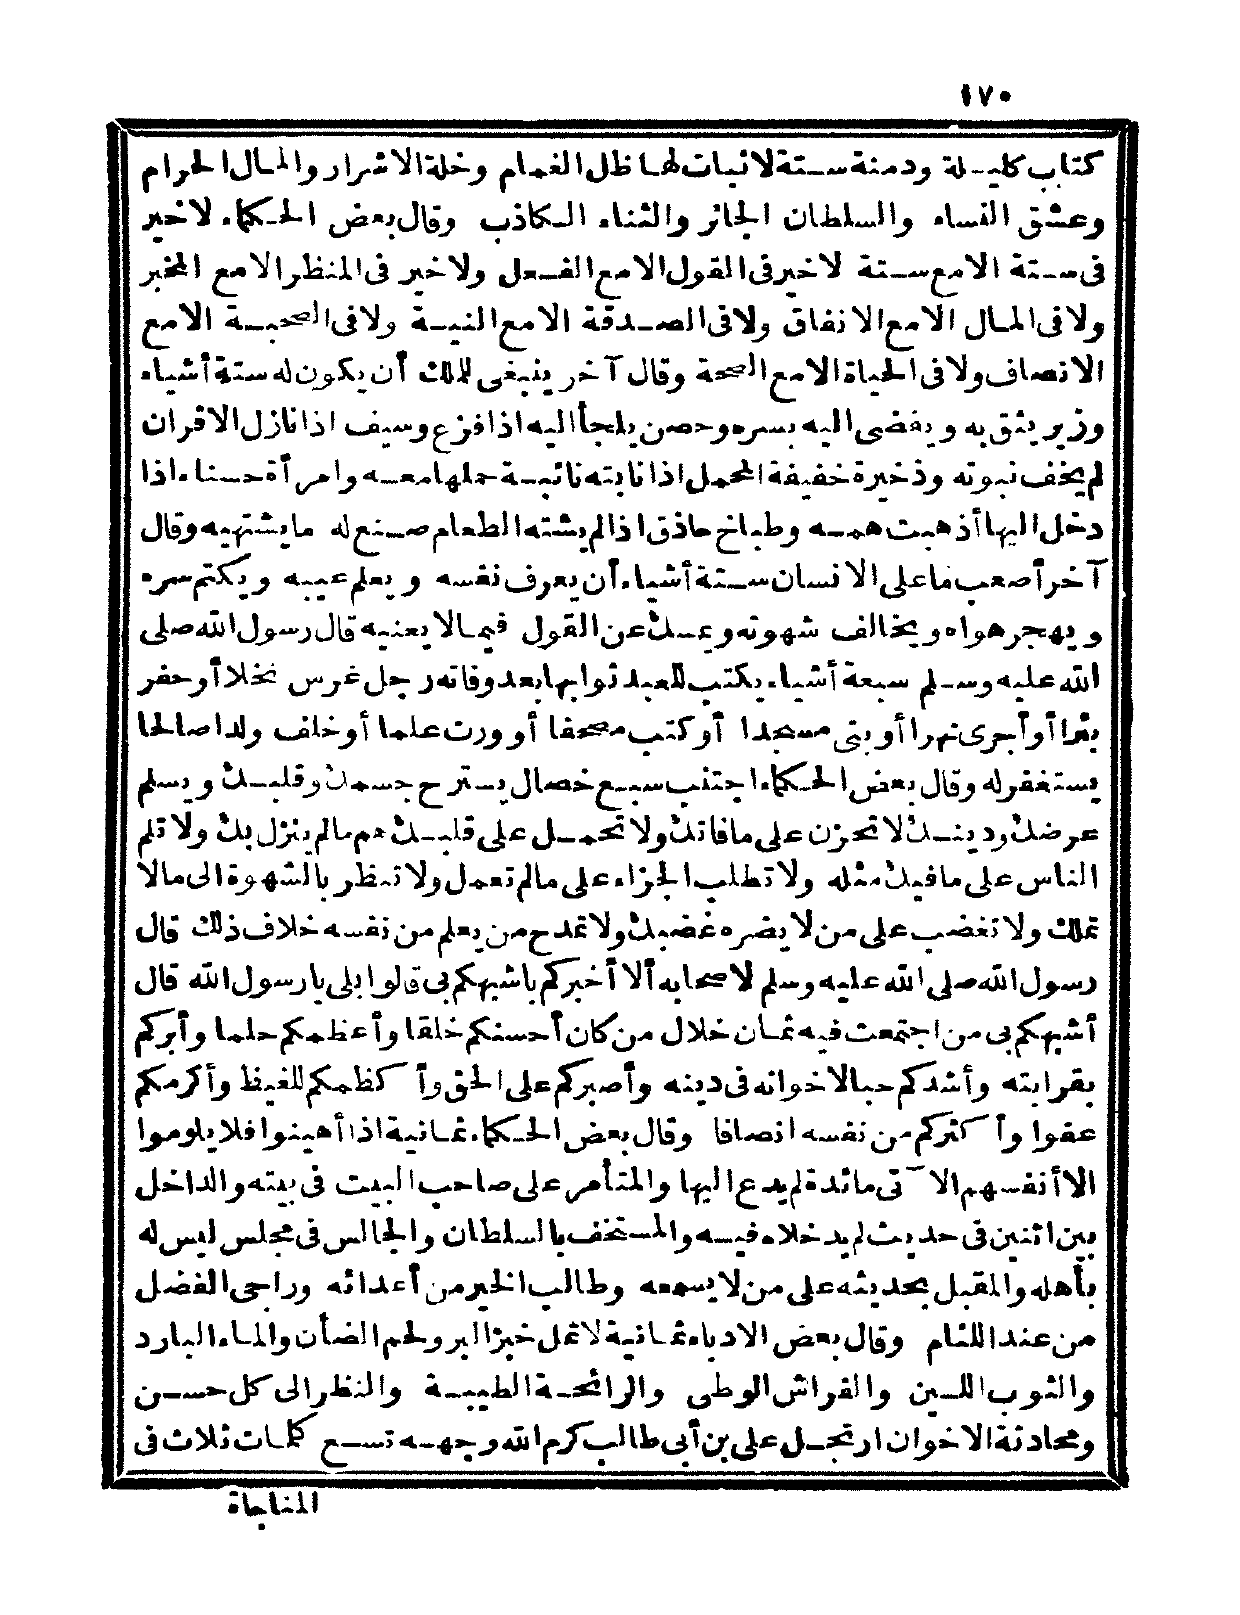 ١٧٠
كتاب كليلة ودمنة ستة لاثبات لها ظل الغمام وخلة الاشرار والمال الحرام
وعشق النساء والسلطان الجائر والثناء الكاذب وقال بعض الحكماء لا خير
فى ستة الامع ستة لا خير فى القول الامع الفعل ولا خير فى المنظر الامع المخبر
ولا فى المال الامع الانفاق ولا فى الصدقة الامع النية ولا فى الصحبة الامع
الانصاف ولا فى الحياة الامع الصحة وقال آخر ينبغى للملك أن يكون له ستة أشياء
وزير يثق به ويفضى اليه بسره وحصن يلجأ اليه اذا فزع وسيف اذا نازل الاقران
لم يخف نبوته وذخيرة خفيفة المحمل اذا نابته نائبة حملها معه وامرأة حسناء اذا
دخل اليها أذهبت همه وطباخ حاذق اذا لم يشته الطعام صنع له ما يشتهيه وقال
آخر أصعب ما على الانسان ستة أشياء أن يعرف نفسه ويعلم عيبه ويكتم سره
ويهجر هواه ويخالف شهوته ويمسك عن القول فيما لا يعنيه قال رسول الله صلى
الله عليه وسلم سبعة أشياء يكتب للعبد ثوابها بعد وفاته رجل غرس نخلا أو حفر
بئرا أو أجرى نهرا أو بنى مسجدا أو كتب مصحفا أو ورث علما أو خلف ولدا صالحا
يستغفر له وقال بعض الحكماء اجتنب سبع خصال يسترح جسمك وقلبك ويسلم
عرضك ودينك لا تحزن على ما فاتك ولا تحمل على قلبك هم ما لم ينزل بك ولا تلم
الناس على ما فيك مثله ولا تطلب الجزاء على ما لم تعمل ولا تنظر بالشهوة الى ما لا
تملك ولا تغضب على من لا يضره غضبك ولا تمدح من يعلم من نفسه خلاف ذلك قال
رسول الله صلى الله عليه وسلم لاصحابه ألا أخبركم باشبهكم بى قالوا بلى يا رسول الله قال
أشبهكم بى من اجتمعت فيه ثمان خلال من كان أحسنكم خلقا وأعظمكم حلما وأبركم
بقرابته وأشدكم حبا لاخوانه فى دينه وأصبركم على الحق وأكظمكم للغيظ وأكرمكم
عفوا وأكثركم من نفسه انصافا وقال بعض الحكماء ثمانية اذا أهينوا فلا يلوموا
الا أنفسهم الآتى مائدة لم يدع اليها والمتأمر على صاحب البيت فى بيته والداخل
بين اثنين فى حديث لم يدخلاه فيه والمستخف بالسلطان والجالس فى مجلس ليس له
بأهله والمقبل بحديثه على من لا يسمعه وطالب الخير من أعدائه وراجى الفضل
من عند اللئام وقال بعض الادباء ثمانية لا تمل خبز البر ولحم الضأن والماء البارد
والثوب اللين والفراش الوطى والرائحة الطيبة والنظر الى كل حسن
ومحادثة الاخوان ارتجل على بن أبى طالب كرم الله وجهه تسع كلمات ثلاث فى
المناجاة